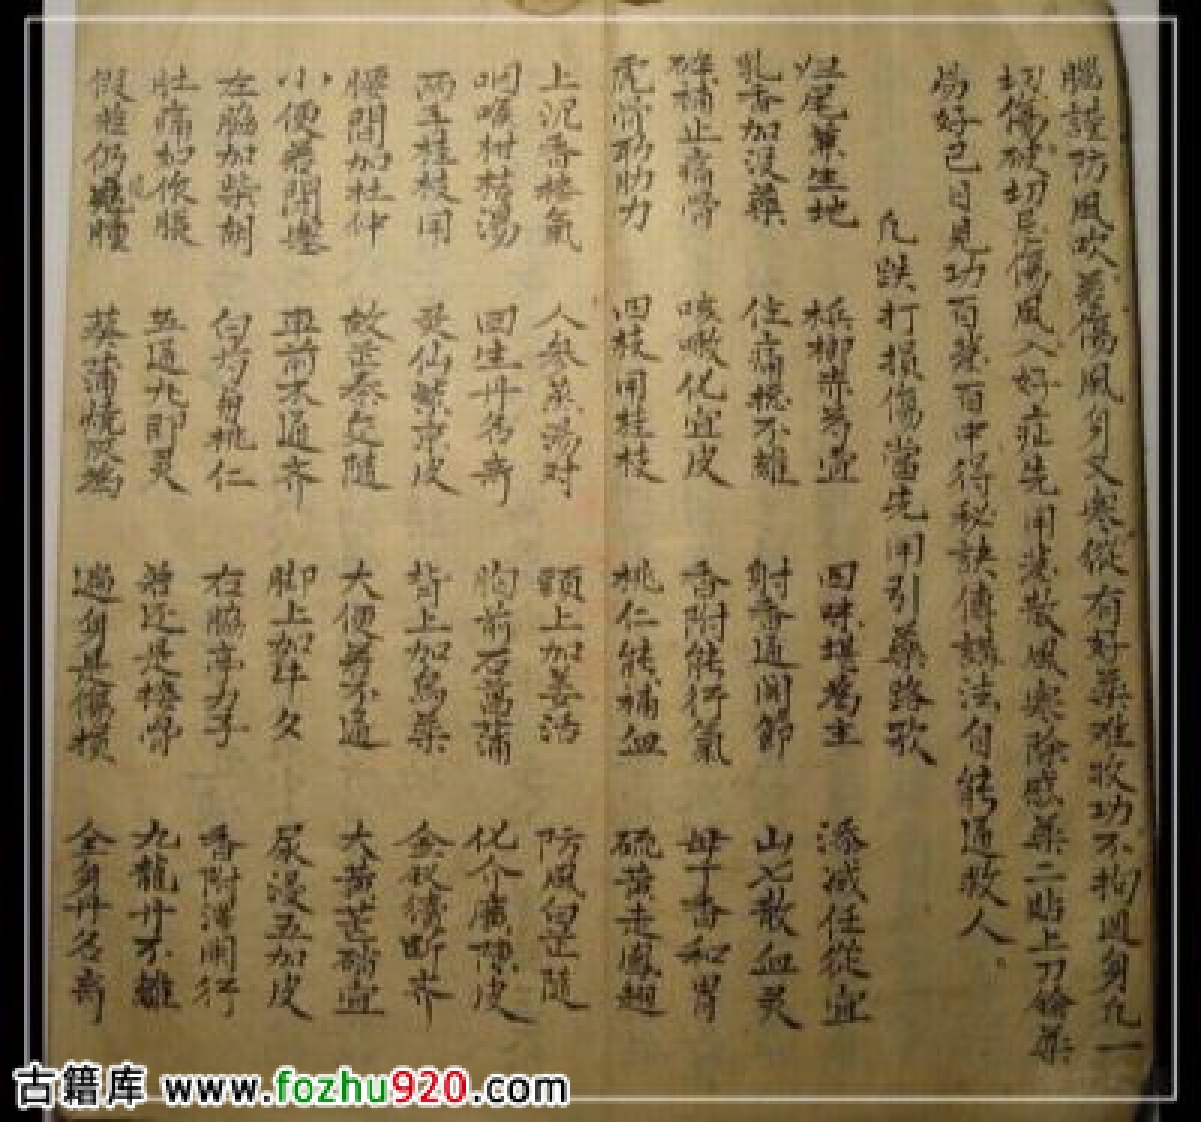 腦謹防風吹若傷風身又寒從有好藥难收功不拘週身凡一
切傷破切忌傷風入好症先用発散風寒除感藥二貼上刀鎗藥
為好已目見功百発百中得秘訣傳謀法自能通救人。
凡跌打損傷當先用引藥路歌
归尾兼生地 梹榔赤芍宜 回味堪為主 添减任從宜
乳香加没藥 住痛攪不離 射香通関節 山七散血灵
碎補止痛骨 咳嗽化宜皮 香附能行氣 母丁香和胃
虎骨助肋力 四枝用桂枝 桃仁能補血 硫黄走鳳翅
上沉香接氣 人參蒸湯对 頭上加姜活 防風白芷隨
咽喉柑桔湯 回生丹名奇 胸前石菖蒲 化介廣陳皮
两手桂枝用 灵仙紫京皮 背上加烏藥 金釵續断齐
腰間加杜仲 故芷秦交隨 大便若不通 大黄芒硝宜
小便若閉塞 車前木通齐 脚上加牛夕 尿浸五加皮
左脇加柴胡 白芍自桃仁 右脇亭力子 香附澤開行
肚痛如作脹 五通丸即灵 若还是接骨 九龍丹不離
假症仍腫 葵蒲燒皮為 遍身是傷損 全身丹名奇
古籍库 www.fozhu920.com